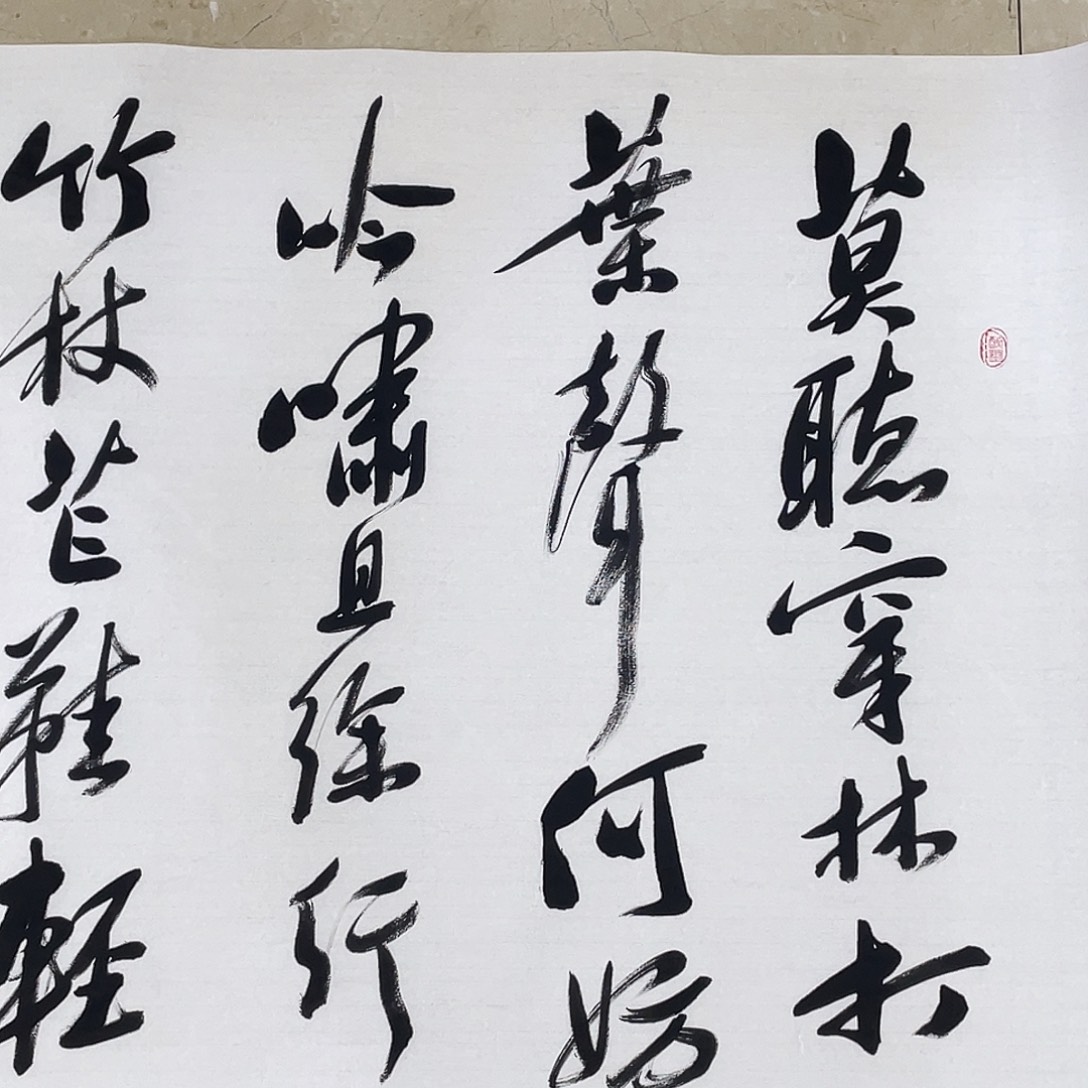 莫聽穿林打
葉聲何妨
吟嘯且徐行
竹杖芒鞋輕